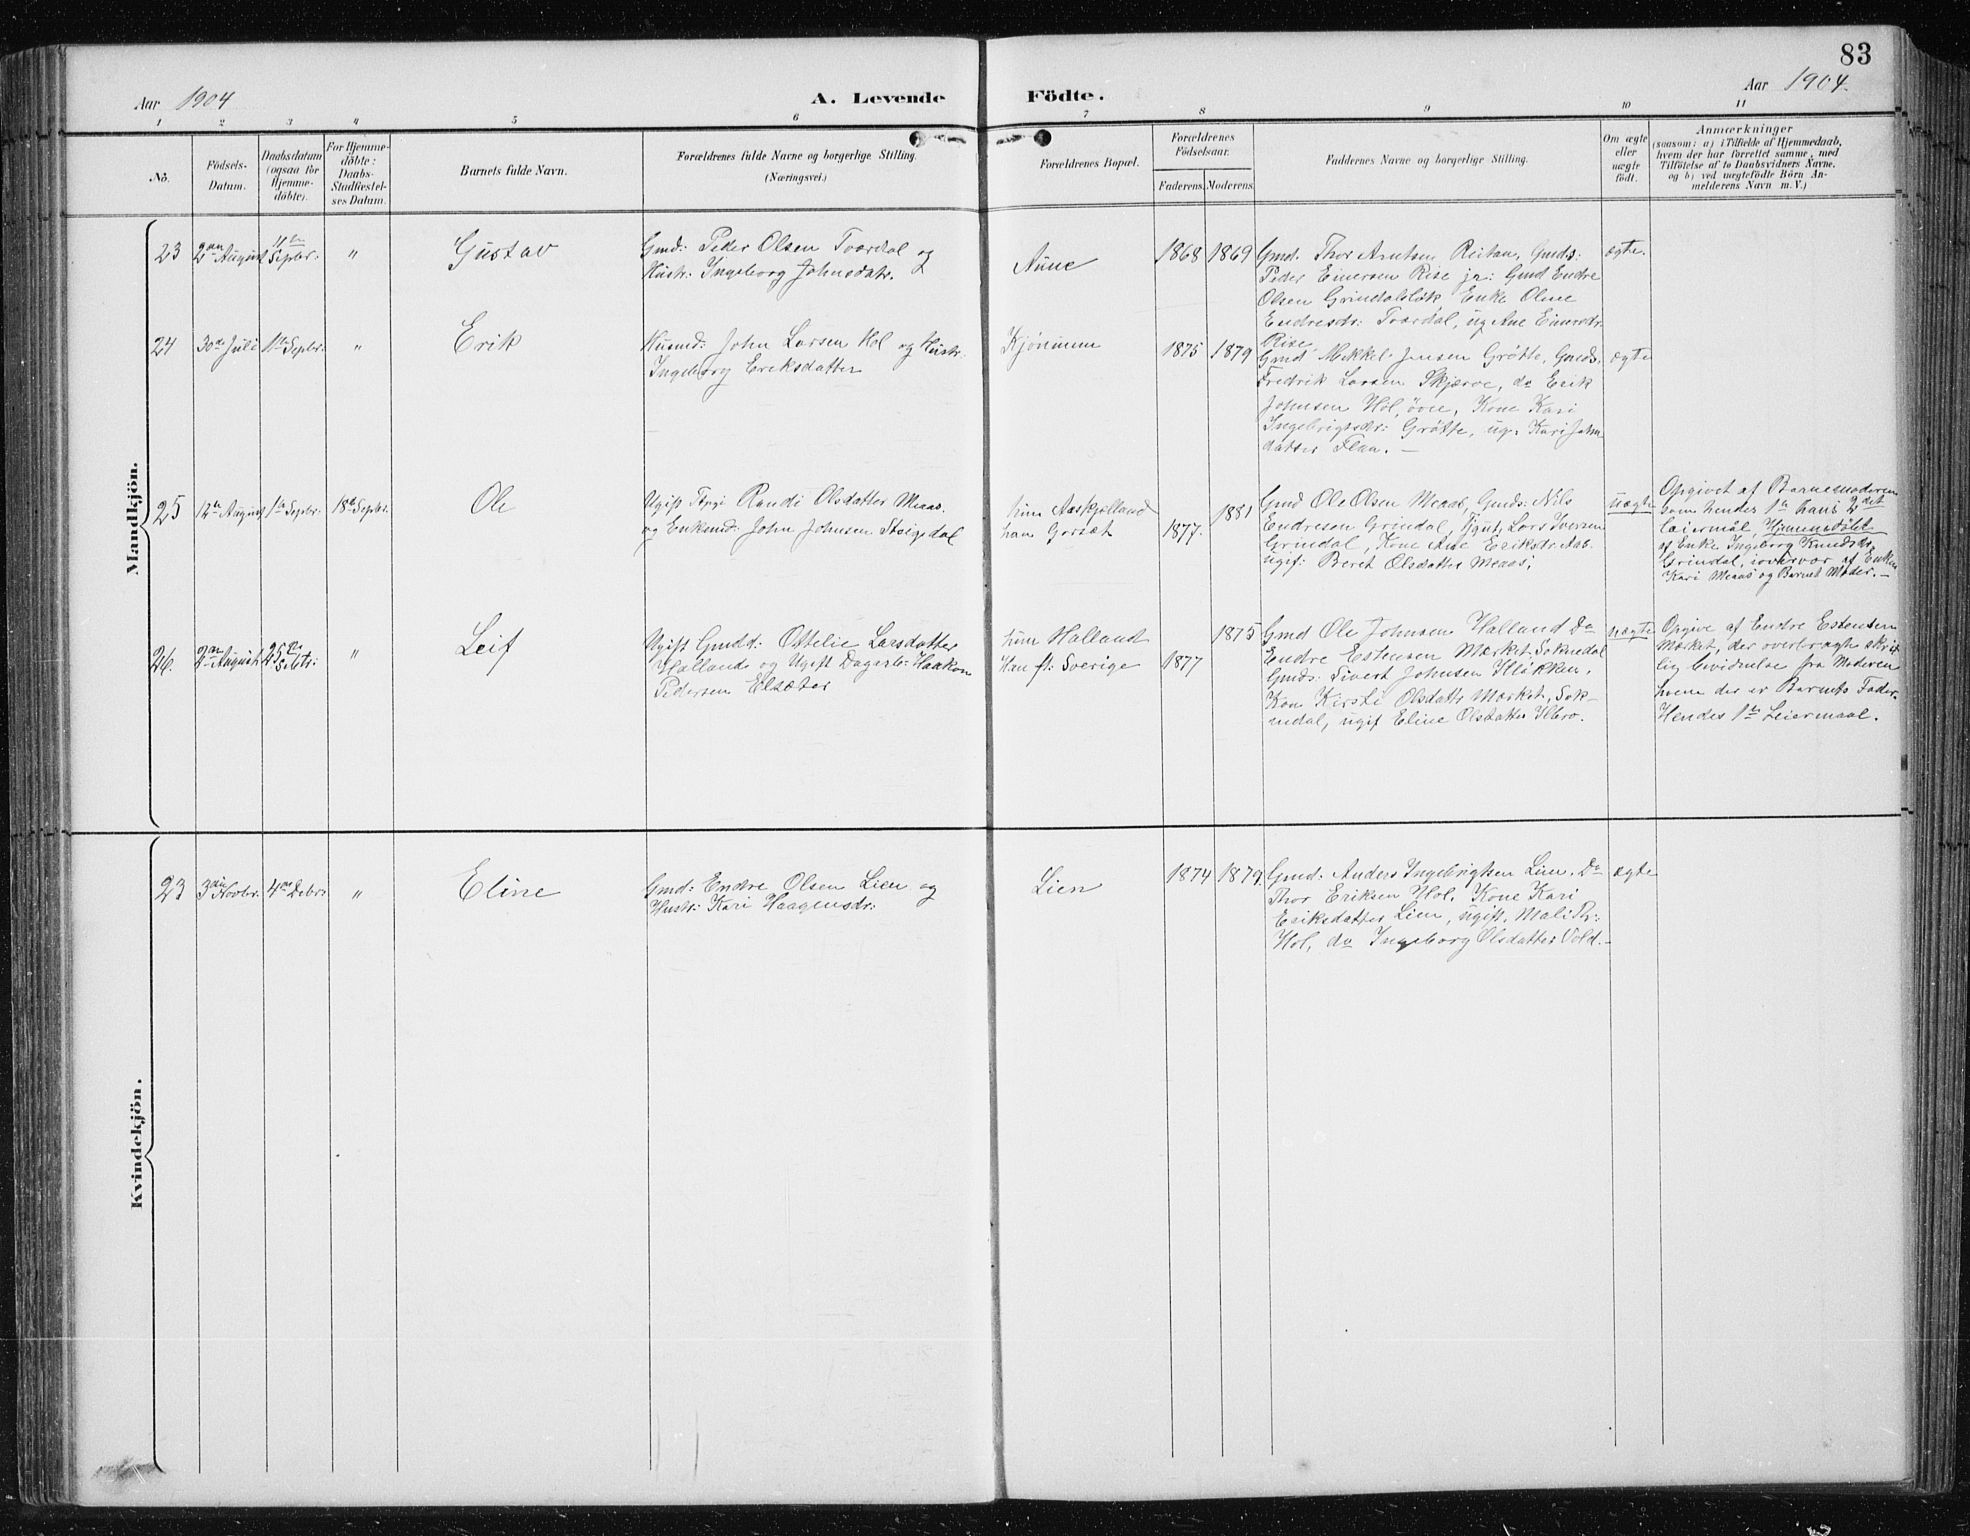 83
Aar 1904
A. Levende
Födte.
Aar 1904.
1 2 3 4 5 6 7 8 9 10 11
No.
Födsels-
Datum.
Daabsdatum
(ogsaa for
Hjemme-
döbte).
For Hjemme-
döbte:
Daabs-
Stadfæstel-
ses Datum.
Barnets fulde Navn.
Forældrenes fulde Navne og borgerlige Stilling.
(Næringsvei.)
Forældrenes Bopæl.
Forældrenes
Födselsaar.
Faderens. Moderens.
Faddernes Navne og borgerlige Stilling.
Om ægte
eller
uægte
födt.
Anmærkninger
(saasom: a) i Tilfælde af Hjemmedaab,
hvem der har forrettet samme, med
Tilföielse af to Daabsvidners Navne,
og b) ved uægtefödte Börn An-
melderens Navn m. V.)
Mandkjön.
23
2den August
11te
Septbr.
"
Gustav
Gmd: Peder Olsen Tværdal og
Hustr: Ingeborg Johnsdatr.
Aune
1868
1869
Gmd. Thor Arntsen Reitan, Gmds:
Peder Einersen Rise jr: Gmd Endre
Olsen Grindalsløk Enke Oline
Endresdr: Tværdal, ug Ane Einersdr
Rise
ægte.
24
30te Juli
1te Septbr.
"
Erik
Husmd: John Larsen Hol og Hustr:
Ingeborg Eriksdatter
1875
1879
Gmd Mikkel Jensen Grøtte, Gmds:
Fredrik Larsen Skjærve, do Erik
Johnsen Hol, øvre, Kone Kari
Ingebrigtsdr: Grøtte, ug. Kari John
datter Flaa. —
ægte
25
12te August
1te Septbr.
18te Septbr.
Ole
Ugift Randi Olsdatter Meaas
og Enkemd: John Johnsen
hun
han Gorset
1877.
1881
Gmd Ole Olsen Meaas, Gmds: Nils
Endresen Grindal, Lars Iversen
Grindal, Kone Ane Eriksdr: Aas.
ugif: Beret Olsdatter Meaas,
uægte
Opgivet af Barnemoderen
som hendes 1te hans 2det
Leiermål, Hjemmedøbt
af Enke Ingeborg Knudsdr.
Grindal, af Enken
Kari Meaas og Barnets Moder. —
26.
2den August
25de
Septr:
"
Leif
Ugift Gmdd: Ottelie Larsdatter
Halland og Ugift Dagarb: Haakon
Pedersen Elsæter
hun Halland
Han fl: Sverige
1877
1875
Gmd Ole Johnsen Halland Do
Endre Estensen Mærket Soknedal
Gmds: Sivert Johnsen
Kon Kirsti Olsdatte Mærket, Sok-
nedal, ugif Eline Olsdatter Ilbro.
uægte
Opgive af Endre Estensen
Mærket, der overbragte skrift
lig Bevidnelse fra Moderen
hvem der er Barnets Fader.
Hendes 1te Leiermaal.
Kvindekjön.
23
3die Novbr.
4de Debr:
"
Eline
Gmd: Endre Olsen Lien og
Hustr: Kari Haagensdr:
Lien
1874
1879
Gmd: Anders Ingebrigtsen Lien, Do
Thor Eriksen Hol, Kone Kari
Eriksdatter Lien, ugift, Mali
Hol, do Ingeborg Olsdatter Vold. —
ægte